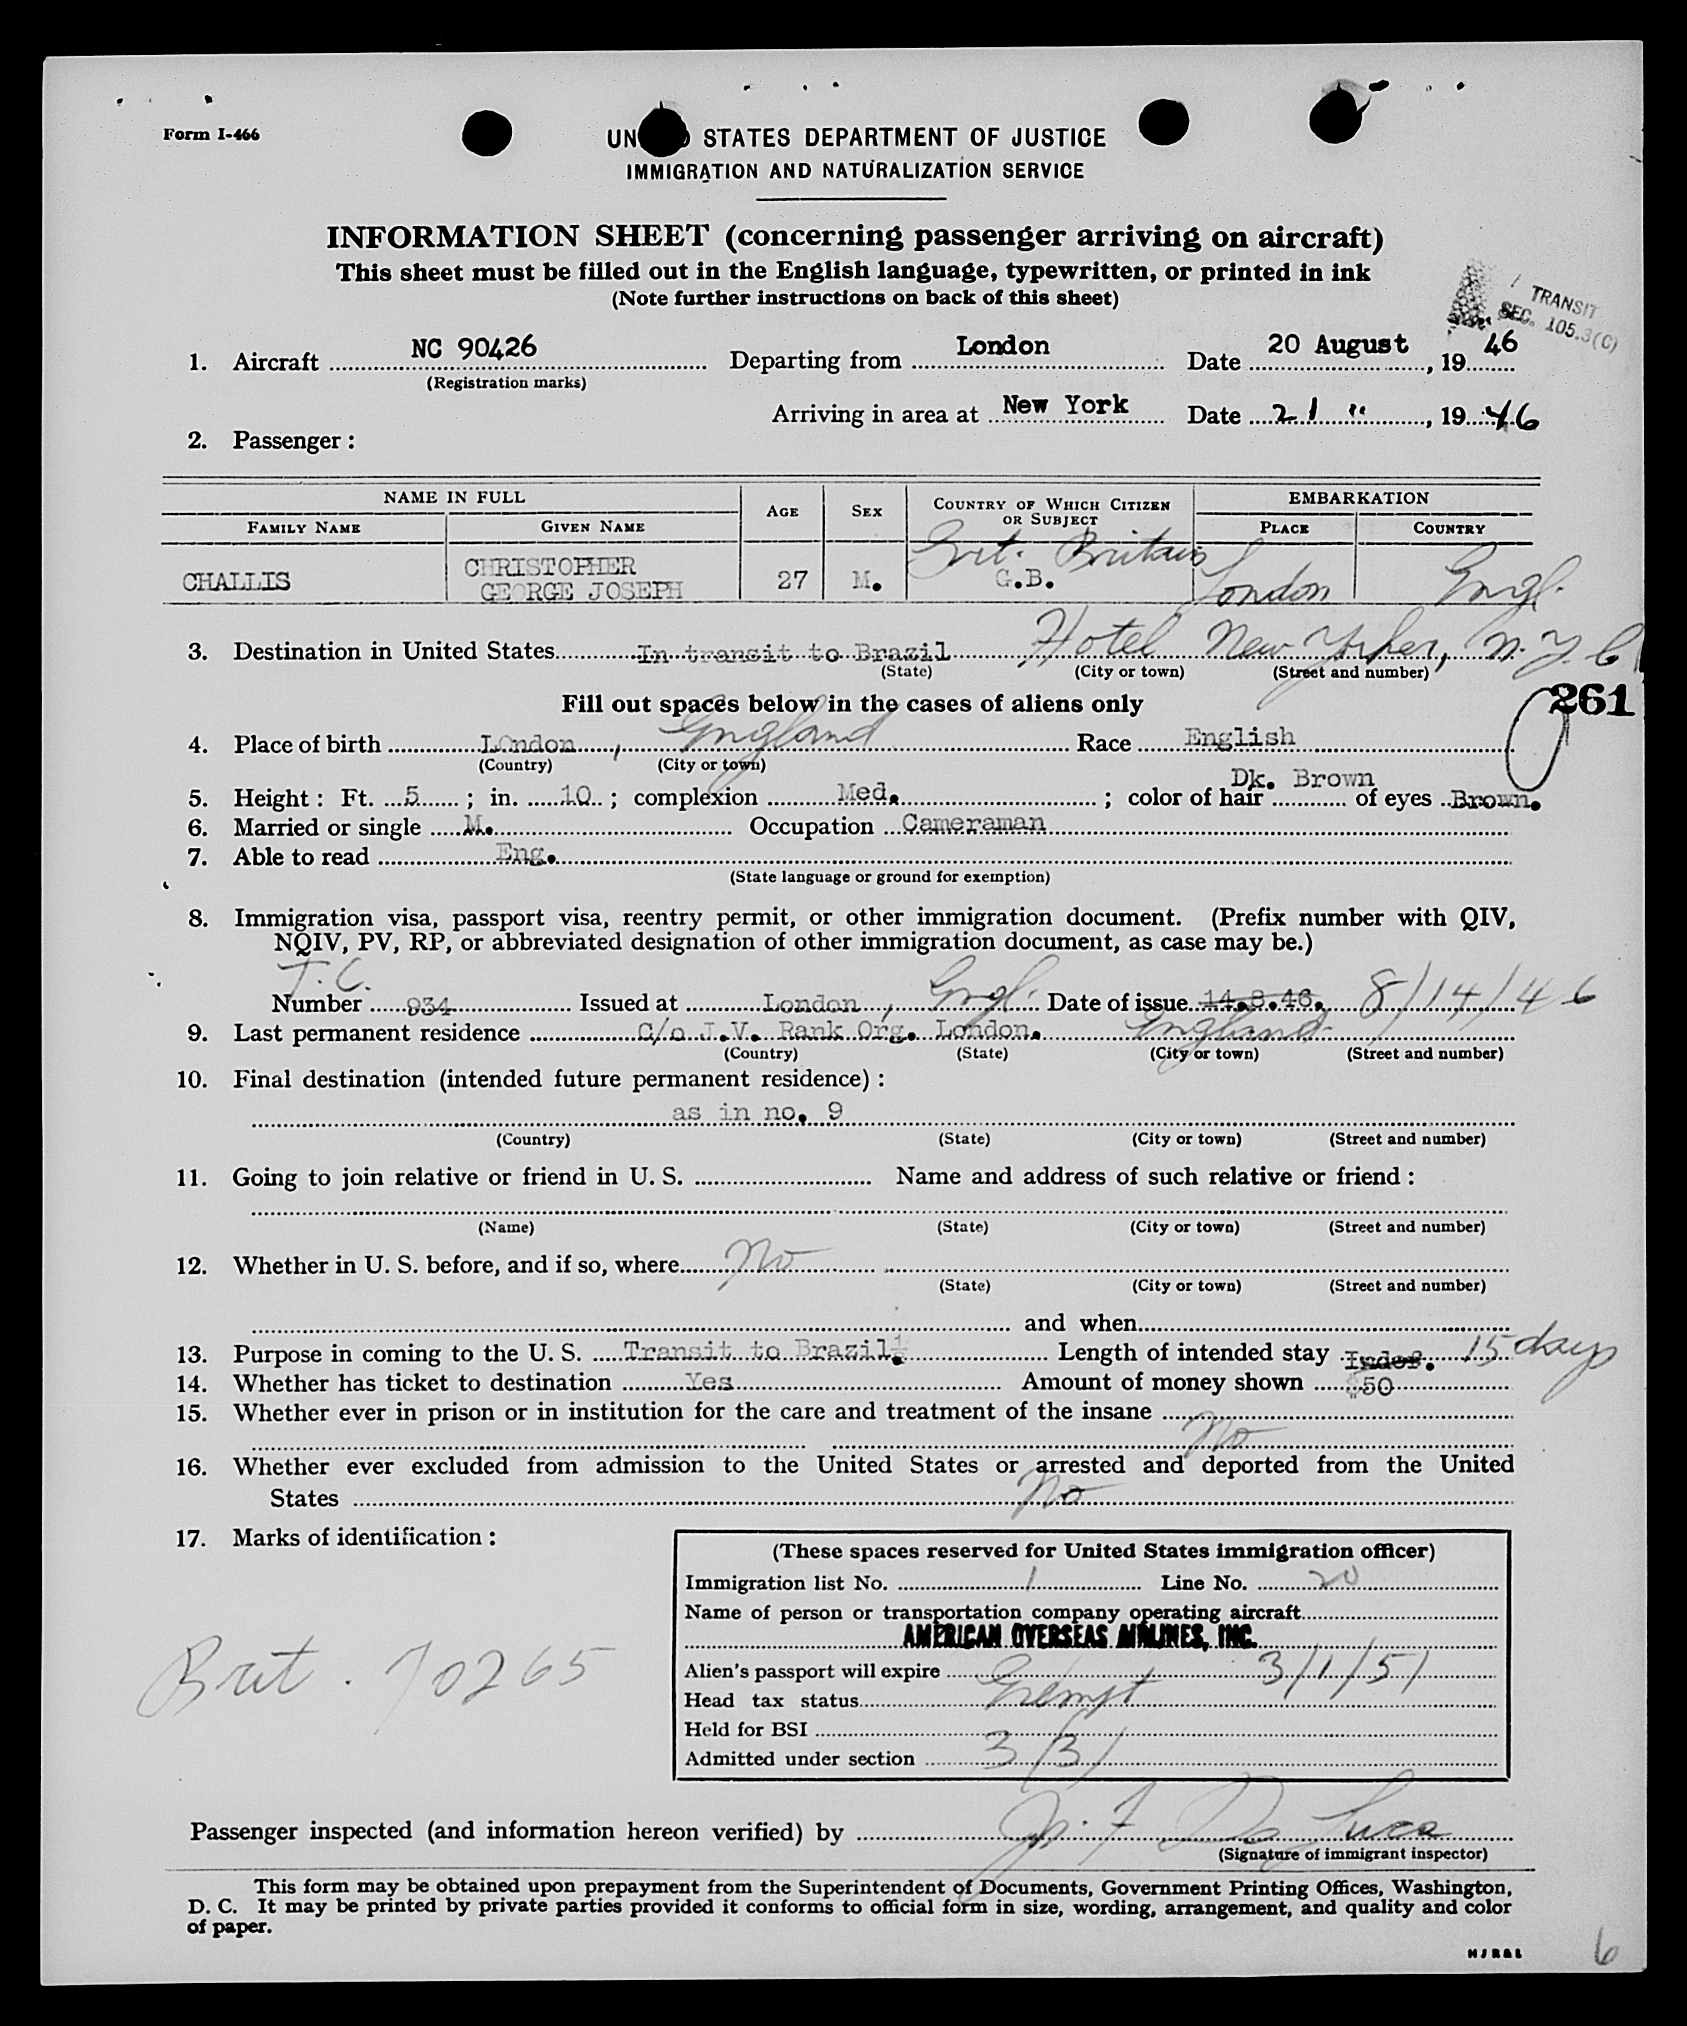 Form I-466
UN STATES DEPARTMENT OF JUSTICE
IMMIGRATION AND NATURALIZATION SERVICE
INFORMATION SHEET (concerning passenger arriving on aircraft)
This sheet must be filled out in the English language, typewritten, or printed in ink
(Note further instructions on back of this sheet)
TRANSIT
SEC. 105.3(C)
1. Aircraft NC 90426 Departing from London Date 20 August, 1946
(Registration marks)
Arriving in area at New York Date 21 ", 1946
2. Passenger:
NAME IN FULL AGE SEX COUNTRY OF WHICH CITIZEN OR SUBJECT EMBARKATION
FAMILY NAME GIVEN NAME PLACE COUNTRY
CHALLIS CHRISTOPHER GEORGE JOSEPH 27 M. Grt. Britain G.B. London Engl.
3. Destination in United States In transit to Brazil Hotel New Yorker, N.Y.C
(State) (City or town) (Street and number)
261
Fill out spaces below in the cases of aliens only
4. Place of birth London, England Race English
(Country) (City or town)
5. Height: Ft. 5; in. 10; complexion Med.; color of hair Dk. Brown of eyes Brown.
6. Married or single M. Occupation Cameraman
7. Able to read Eng.
(State language or ground for exemption)
8. Immigration visa, passport visa, reentry permit, or other immigration document. (Prefix number with QIV,
NQIV, PV, RP, or abbreviated designation of other immigration document, as case may be.)
T.C.
Number 934 Issued at London, Engl. Date of issue 14.8.46. 8/14/46
9. Last permanent residence C/o J.V. Rank Org. London. England
(Country) (State) (City or town) (Street and number)
10. Final destination (intended future permanent residence):
as in no. 9
(Country) (State) (City or town) (Street and number)
11. Going to join relative or friend in U. S. Name and address of such relative or friend:
(Name) (State) (City or town) (Street and number)
12. Whether in U. S. before, and if so, where No
(State) (City or town) (Street and number)
and when
13. Purpose in coming to the U. S. Transit to Brazil. Length of intended stay Indef. 15 days
14. Whether has ticket to destination Yes Amount of money shown $50
15. Whether ever in prison or in institution for the care and treatment of the insane
No
16. Whether ever excluded from admission to the United States or arrested and deported from the United
States No
17. Marks of identification:
Brit. 70265
(These spaces reserved for United States immigration officer)
Immigration list No. 1 Line No. 20
Name of person or transportation company operating aircraft
AMERICAN OVERSEAS AIRLINES, INC.
Alien's passport will expire 3/1/51
Head tax status Exempt
Held for BSI
Admitted under section 3(3)
Passenger inspected (and information hereon verified) by F De Luca
(Signature of immigrant inspector)
This form may be obtained upon prepayment from the Superintendent of Documents, Government Printing Offices, Washington,
D. C. It may be printed by private parties provided it conforms to official form in size, wording, arrangement, and quality and color
of paper.
6